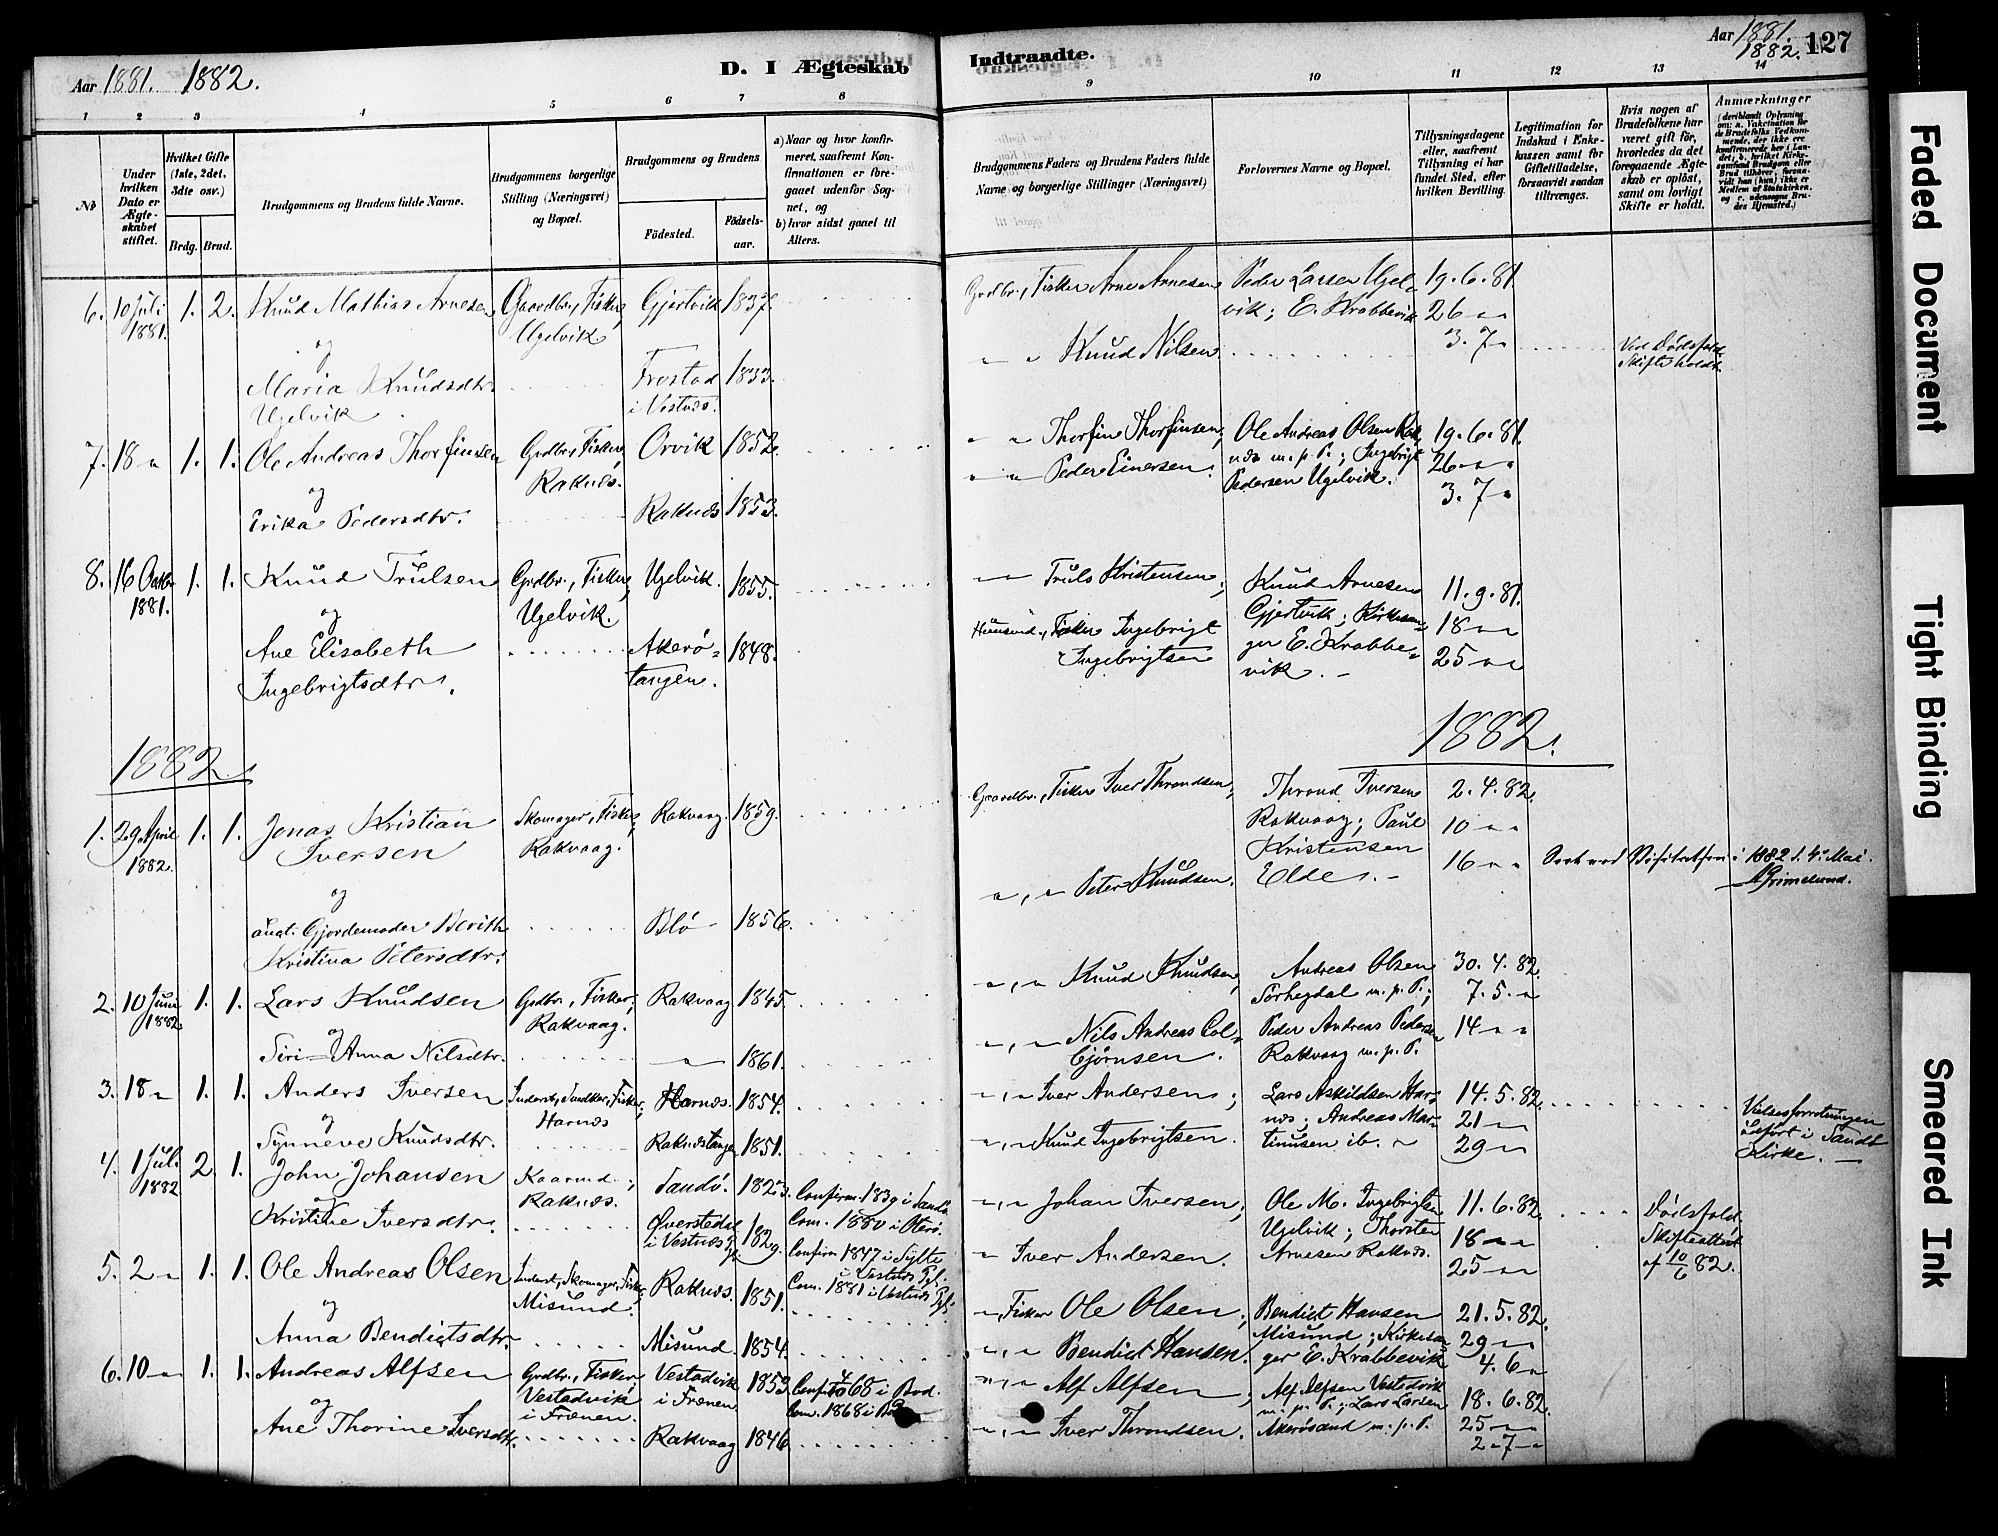 Aar 1881. 1882.
D. I Ægteskab
Indtraadte.
Aar 1881. 1882. 127
1 2 3 4 5 6 7 8 9 10 11 12 13 14
No
Under hvilken Dato er Ægteskabet stiftet.
Hvilket Gifte (1ste, 2det, 3dte osv.)
Brdg. Brud.
Brudgommens og Brudens fulde Navne.
Brudgommens borgerlige Stilling (Næringsvei) og Bopæl.
Brudgommens og Brudens
Fødested. Fødselsaar.
a) Naar og hvor konfirmeret, saafremt Konfirmationen er foregaaet udenfor Sognet, og
b) hvor sidst gaaet til Alters.
Brudgommens Faders og Brudens Faders fulde Navne og borgerlige Stillinger (Næringsvei)
Forlovernes Navne og Bopæl.
Tillysningsdagene eller, saafremt Tillysning ei har fundet Sted, efter hvilken Bevilling.
Legitimation for Indskud i Enkekassen samt for Giftetilladelse, forsaavidt saadan tiltrænges.
Hvis nogen af Brudefolkene har været gift før, hvorledes da det foregaaende Ægteskab er opløst, samt om lovligt Skifte er holdt.
Anmærkninger (deriblandt Oplysning om: a. Vakcination for de Brudefolks Vedkommende, der ikke ere konfirmerede her i Landet; b. hvilket Kirkesamfund Brudgom eller Brud tilhører, forsaavidt han (hun) ikke er Medlem af Statskirken, og c. udensogns Brudes Hjemsted.)
6. 10 Juli 1881. 1. 2. Knud Mathias Arnesen Gaardbr., Fisker, Ugelvik Gjertvik 1837. Grdbr., Fisker Arne Arnesen Peder Larsen Ugelvik; E. Krabbevik 19.6.81 26 " " 3.7 "
og Maria Knudsdtr. Ugelvik Frostad i Vestnæs. 1833. " " Knud Nilsen Ved Dødsfald Skifte holdt.
7. 18 " 1. 1. Ole Andreas Thorfinsen Grdbr., Fisker, Raknæs. Orvik 1852. " " Thorfin Thorfinsen; Ole Andreas Olsen Raknæs m.p.P.; Ingebrigt Pedersen Ugelvik. 19.6.81. 26 " " 3.7 "
og Erika Pedersdtr. Raknæs 1853. " " Peder Einersen.
8. 16 Octbr 1881. 1. 1. Knud Trulsen Grdbr., Fisker, Ugelvik. Ugelvik. 1855. " " Truls Kristensen; Knud Arnesen Gjertvik; Kirkesanger E. Krabbevik. 11.9.81. 18 " " 25 " "
og Ane Elisabeth Ingebrigtsdtr. Akerøtangen. 1848. Huusmd., Fisker Ingebrigt Ingebrigtsen
1882.
1882.
1. 29 April 1882. 1. 1. Jonas Kristian Iversen Skomager, Fisker, Rakvaag. Rakvaag. 1859. Gaardbr., Fisker Iver Throndsen; Thrond Iversen Rakvaag; Paul Kristensen Elde. 2.4.82. 10 " " 16 " "
og Gjordemoder Berith Kristina Petersdtr. Blø 1856. " , " Peter Knudsen. i 1882 d. 4. Mai. Grimelund.
2. 10 Juni 1882. 1. 1. Lars Knudsen Grdbr., Fisker, Rakvaag. Rakvaag 1845. " , " Knud Knudsen, Andreas Olsen Sørhegdal m.p.P.; Peder Andreas Pedersen Rakvaag m.p.P. 30.4.82. 7.5. " 14 " "
og Siri=Anna Nilsdtr. " 1861. " , " Nils Andreas Colbjørnsen.
3. 18 " 1. 1. Anders Iversen Inderst, Snedker, Fisker, Harnæs Harnæs. 1854. " , " Iver Andersen; Lars Askildsen Harnæs; Andreas Martinusen ib. 14.5.82. 21 " 29 "
og Synneve Knudsdtr. Raknæstangen 1851. " , " Knud Ingebrigtsen. Vielsesforretningen udført i Sandø Kirke.
4. 1 Juli 1882 2. 1. John Johansen Kaarmd., Raknæs. Sandø. 1823. Confirm. 1839 i Sandø Com. 1880 i Oterø. " , " Johan Iversen; Ole M. Ingebrigtsen Ugelvik; Thorsten Arnesen Raknæs. 11.6.82. 18 " " 25 " " Dødsfald. Skifteattest af 10/6 82.
og Kristine Iversdtr. Øverstedal i Vestnæs Pgj. 1829. Confirm 1847 i Sylte i Vestnæs Pgj. Com. 1881 i Vestnæs Pgj. " Iver Andersen.
5. 2 " 1. 1. Ole Andreas Olsen Inderst, Skomager, Fisker, Misund. Raknæs. 1851. " , Fisker Ole Olsen; Bendict Hansen Misund; Kirkesanger E. Krabbevik 21.5.82. 29 " 4.6 "
og Anna Bendigtsdtr. Misund. 1854. " , " Bendict Hansen.
6. 10 " 1. 1. Andreas Alfsen Grdbr., Fisker, Vestadvik i Frænen. Vestadvik i Frænen 1853. Conf. 4/10 68 i Bod. Com. 1868 i Bod " , " Alf Alfsen; Alf Alfsen Vestadvik m.p.P.; Lars Larsen Akerøsund m.p.P. 18.6.82. 25 " " 2 " 7 "
og Ane Thorine Iversdtr. Rakvaag 1846. " , " Iver Throndsen.
Faded Document
Tight Binding
Smeared Ink